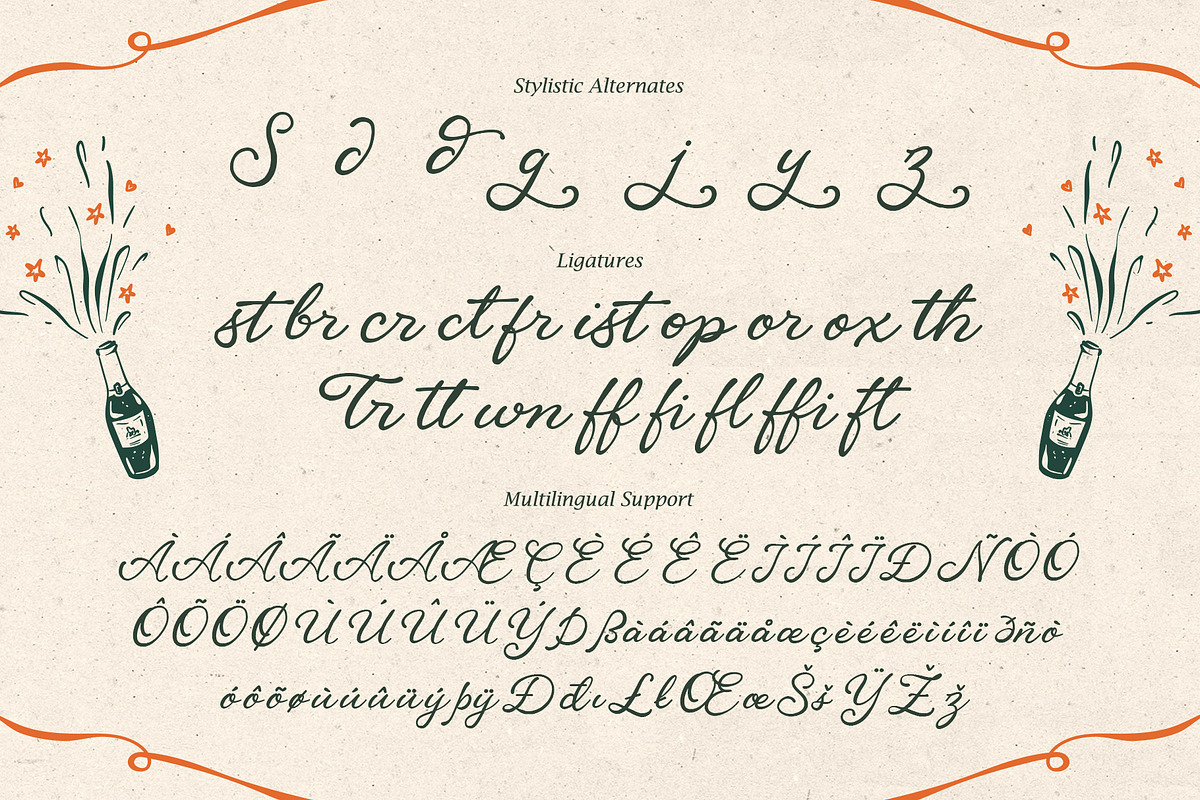 Stylistic Alternates
S ∂ ∂ g j y z
Ligatures
st br cr ct fr ist op or ox th
Tr tt wn ff fi fl ffi ft
Multilingual Support
ÀÁÂÃÄÅÆÇÈÉÊËÌÍÎÏÐÑÒÓ
ÔÕÖØÙÚÛÜÝÞßàáâãäåæçèéêëìíîïðñò
óôõøùúûüýþÿĐđıŁłŒœŠšŸŽž